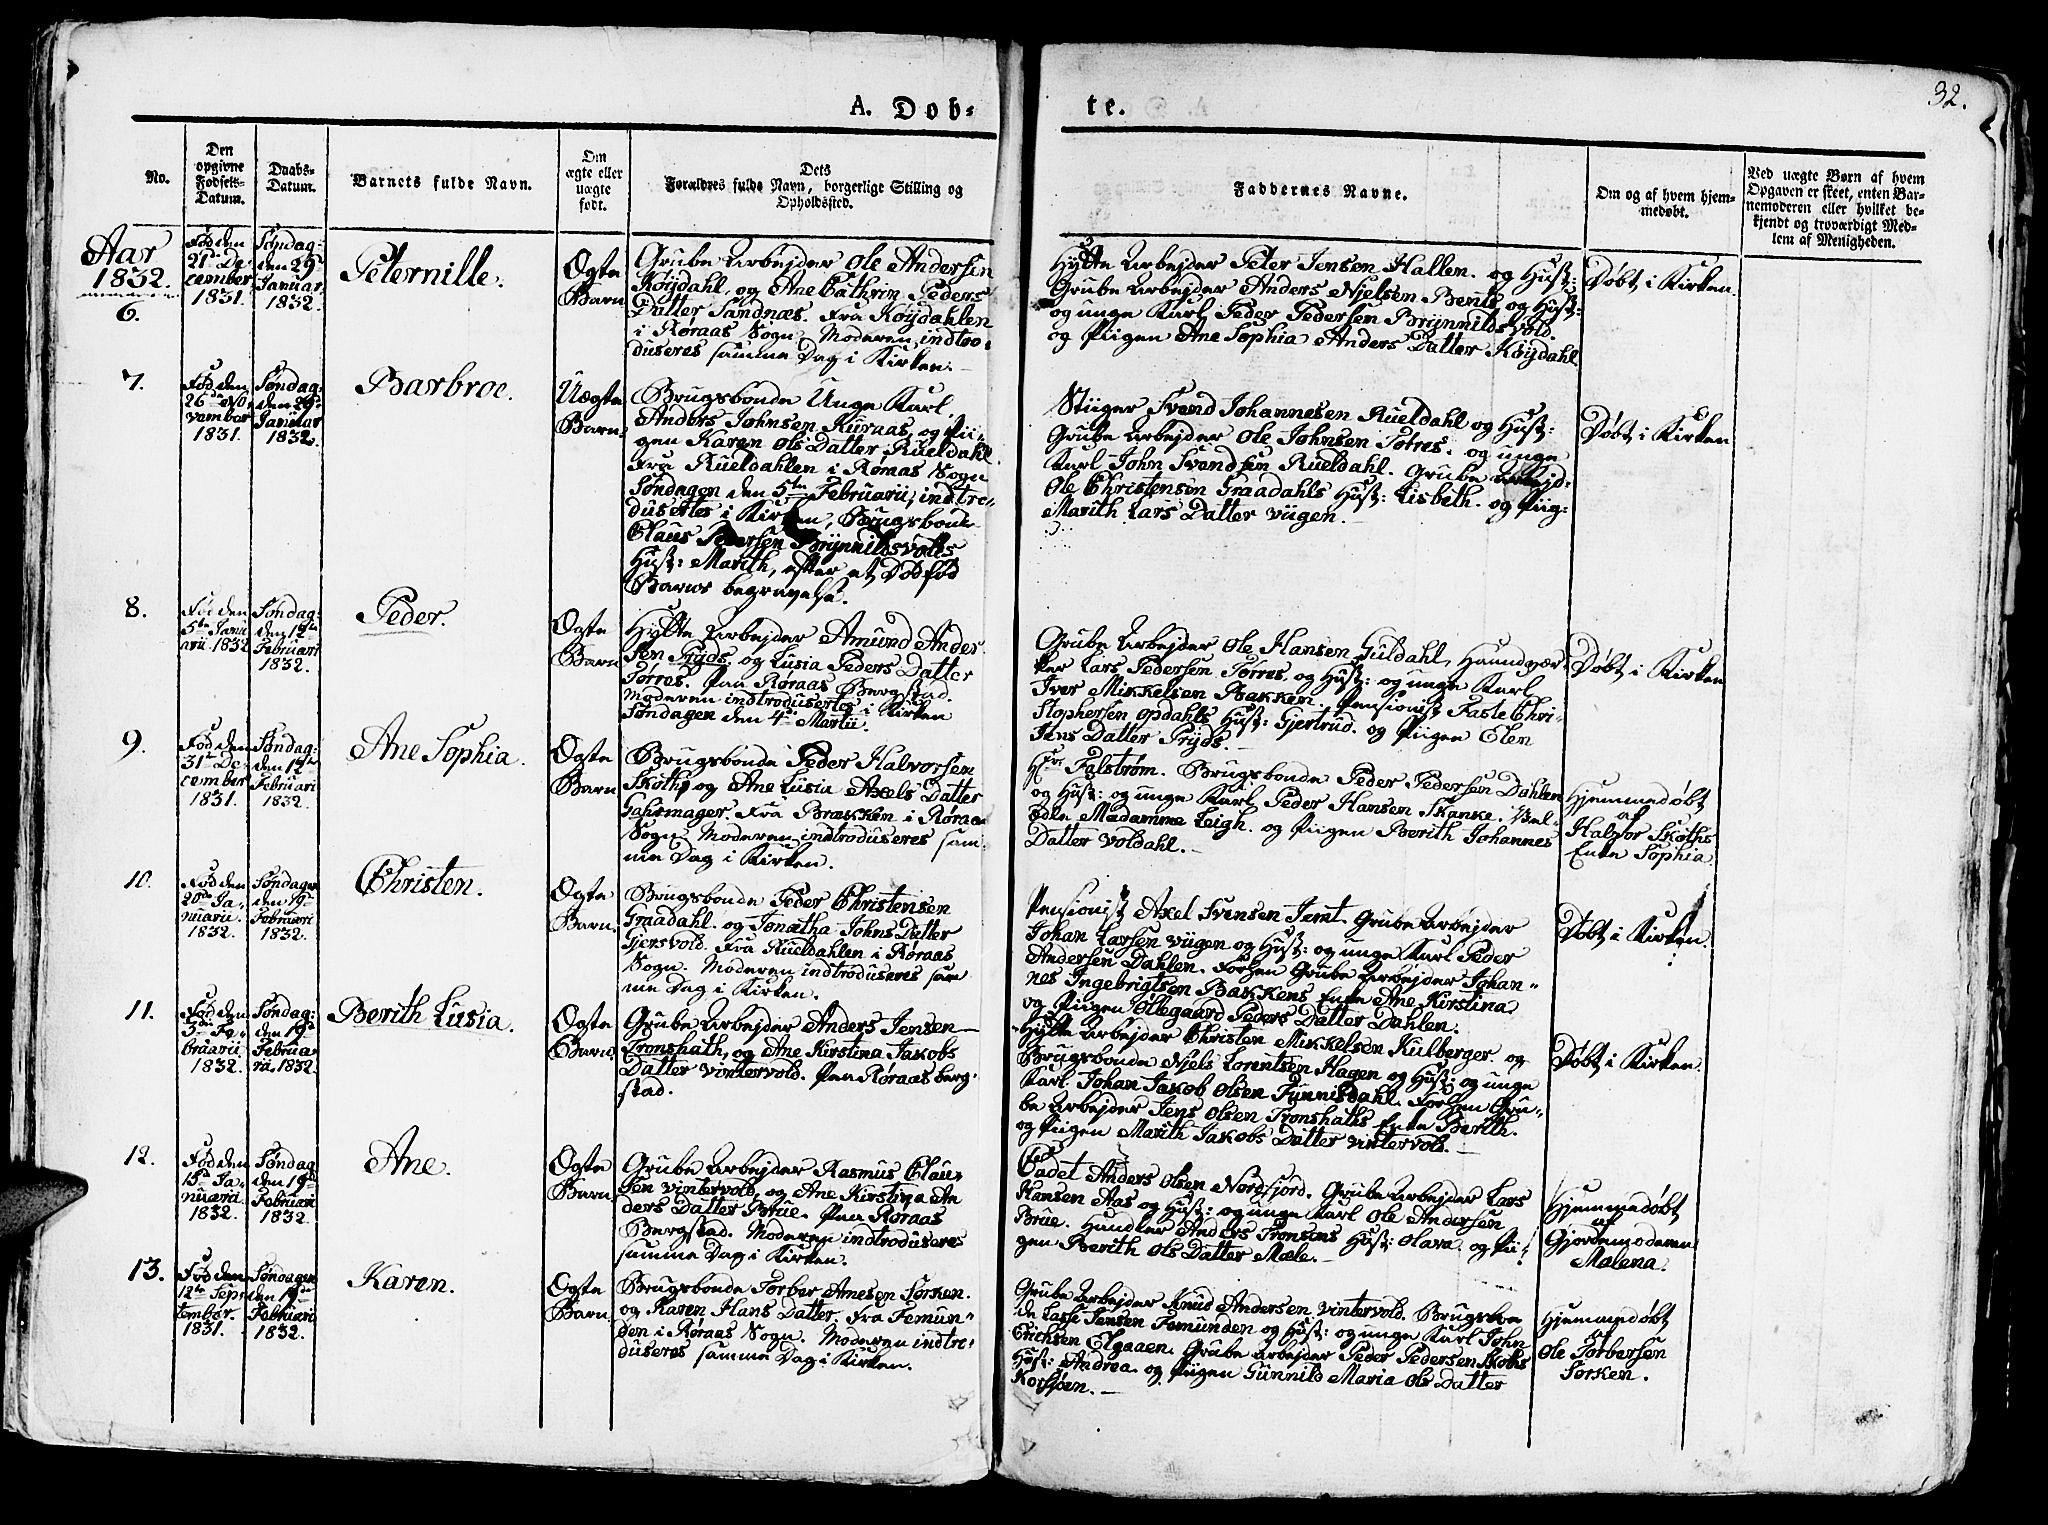 32.
A. Døb-
te.
No.
Den
opgivne
Fødsels-
Datum.
Daabs-
Datum.
Barnets fulde Navn.
Om
ægte eller
uægte
født.
Dets
Forældres fulde Navn, borgerlige Stilling og
Opholdssted.
Faddernes Navne.
Om og af hvem hjem-
medøbt.
Ved uægte Børn af hvem
Opgaven er skeet, enten Bar-
nemoderen eller hvilket be-
kjendt og troværdigt Med-
lem af Menigheden.
Aar
1832.
6.
Fød den
21de De
cember
1831.
Søndag:
den 29d
Januar
1832.
Peternille.
Ögte
Barn
Grube Arbejder Ole Andersen
Køjdahl, og Ane Cathrin Peders
Datter Sandnæs. Fra Køjdahlen
i Røraas Sogn. Moderen, indtro-
duseres samme Dag i Kirken.
Hytte Arbejder Peter Jensen Hallen. og Hust:
Grube Arbejder Anders Njelsen Bents og Hust:
og unge Karl Peder Pedersen Brynnildsvold.
og Piigen Ane Sophia Anders Datter Køjdahl
Døbt i Kirken.
7.
Fød den
26de No
vember
1831.
Søndag:
den 29d
Januar
1832.
Barbroe.
Uægte
Barn.
Brugsbonde Unge Karl,
Anders Johnsen Kuraas, og Pii-
gen Karen Ols Datter Rueldahl.
Fra Rueldahlen i Røraas Sogn
Søndagen den 5te Februarii, indtro-
duseres i Kirken, Brugsbonde
Claus Pedersen Brynnildsvolds
Hust: Marith, efter et Dødfød
Barns begravelse.
Stiiger Svend Johannesen Rueldahl og Hust:
Grube Arbejder Ole Johnsen Tørres. og unge
Karl John Svendsen Rueldahl. Grube Arbejd:
Ole Christensen Graadahls Hust: Lisbeth. og Piig:
Marith Lars Datter Viigen.
Døbt i Kirken
8.
Fød den
5te Janu
arii. 1832
Søndag:
den 12te
Februari
1832.
Peder.
Ögte
Barn
Hytte Arbejder Amund Ander
sen Pryds, og Lusia Peders Datter
Tørres. Paa Røraas Bergstad.
Moderen indtroduseres i Kirken
Søndagen den 4de Martii.
Grube Arbejder Ole Hansen Guldahl, Haandvær-
ker Lars Pedersen Tørres og Hust: og unge Karl
Iver Mikkelsen Bakken. Pensionist Faste Chri-
stophersen Opdahls Hust: Gjertrud. og Piigen Elen
Jens Datter Pryds.
Døbt i Kirken
9.
Fød den
31te De-
cember
1831.
Søndag:
den 12te
Februari
1832.
Ane Sophia.
Ögte
Barn
Brugsbonde Peder Halvorsen
Skoth, og Ane Lusia Axels Datter
Sahlmager. Fra Brækken i Røraas
Sogn. Moderen indtroduseres sam-
me Dag i Kirken.
Hr Falstrøm. Brugsbonde Peder Pedersen Dahlen
og Hust: og unge Karl Peder Hansen Skanke. Vel-
Edle Madamme Leigh. og Piigen Berith Johannes
Datter Voldahl.
Hjemmedøbt
af
Halvor Skoths
Enke Sophia.
10.
Fød den
20de Ja-
nuarii.
1832.
Søndagen
den 19d
Februari
1832.
Christen.
Ögte
Barn.
Brugsbonde Peder Christensen
Graadahl. og Jonætha Johns Datter
Gjersvold. Fra Rueldahlen i Røraas
Sogn. Moderen indtroduseres sam
me Dag i Kirken.
Pensionist Axel Svensen Jemt. Grube Arbejder
Johan Larsen Viigen og Hust: og unge Karl Peder
Andersen Dahlen. Forhen Grube Arbejder Johan-
nes Ingebrigtsen Bakkens Enke Ane Kirstina
og Piigen Øllegaard Peders Datter Dahlen.
Døbt i Kirken.
11.
Fød den
5te Fe-
bruarii
1832.
Søndag:
den 19d
Februa-
rii. 1832
Berith Lusia.
Ögte
Barn.
Grube Arbejder Anders Jensen
Tronshath, og Ane Kirstina Jakobs
Datter Vintervold. Paa Røraas berg-
stad.
Hytte Arbejder Christen Mikkelsen Kulberger. og
Brugsbonde Njels Lorentsen Hagen og Hust: og unge
Karl Johan Jakob Olsen Funnisdahl. Forhen Gru-
be Arbejder Jens Olsen Tronshaths Enke Berith.
og Piigen Marith Jakobs Datter Vintervold.
Døbt i Kirken.
12.
Fød den
15de Ja-
nuarii
1832.
Søndag
den 19d
Februari
1832.
Ane.
Ögte
Barn
Grube Arbejder Rasmus Clau-
sen Vintervold, og Ane Kirstina An
ders Datter Brue. Paa Røraas
Bergstad. Moderen indtroduseres
samme Dag i Kirken.
Cadet Anders Olsen Nordfjord. Grube Arbejder Lars
Hansen Aas og Hust: og unge Karl Ole Andersen
Brue. Handler Anders Tronsens Hust: Olava. og Pii-
gen Berith Ols Datter Mæle.
Hjemmedøbt
af
Gjordemoderen
Malena.
13.
Fød den
12te Sep-
tember.
1831.
Søndagen
den 19de
Februari
1832.
Karen.
Ögte
Barn
Brugsbonde Torber Arnesen Sørken.
og Karen Hans Datter. Fra Femun-
den i Røraas Sogn. Moderen indtro-
duseres samme Dag i Kirken.
Grube Arbejder Knud Andersen Vintervold. Brugsbon
de Lasse Jensen Femunden og Hust: og unge Karl John
Erichsen Elgaaen. Grube Arbejder Peder Pedersen Skoths
Hust: Andrea. og Piigen Gunnild Maria Ols Datter
Korssjøen.
Hjemmedøbt
af
Ole Torbersen
Sørken.